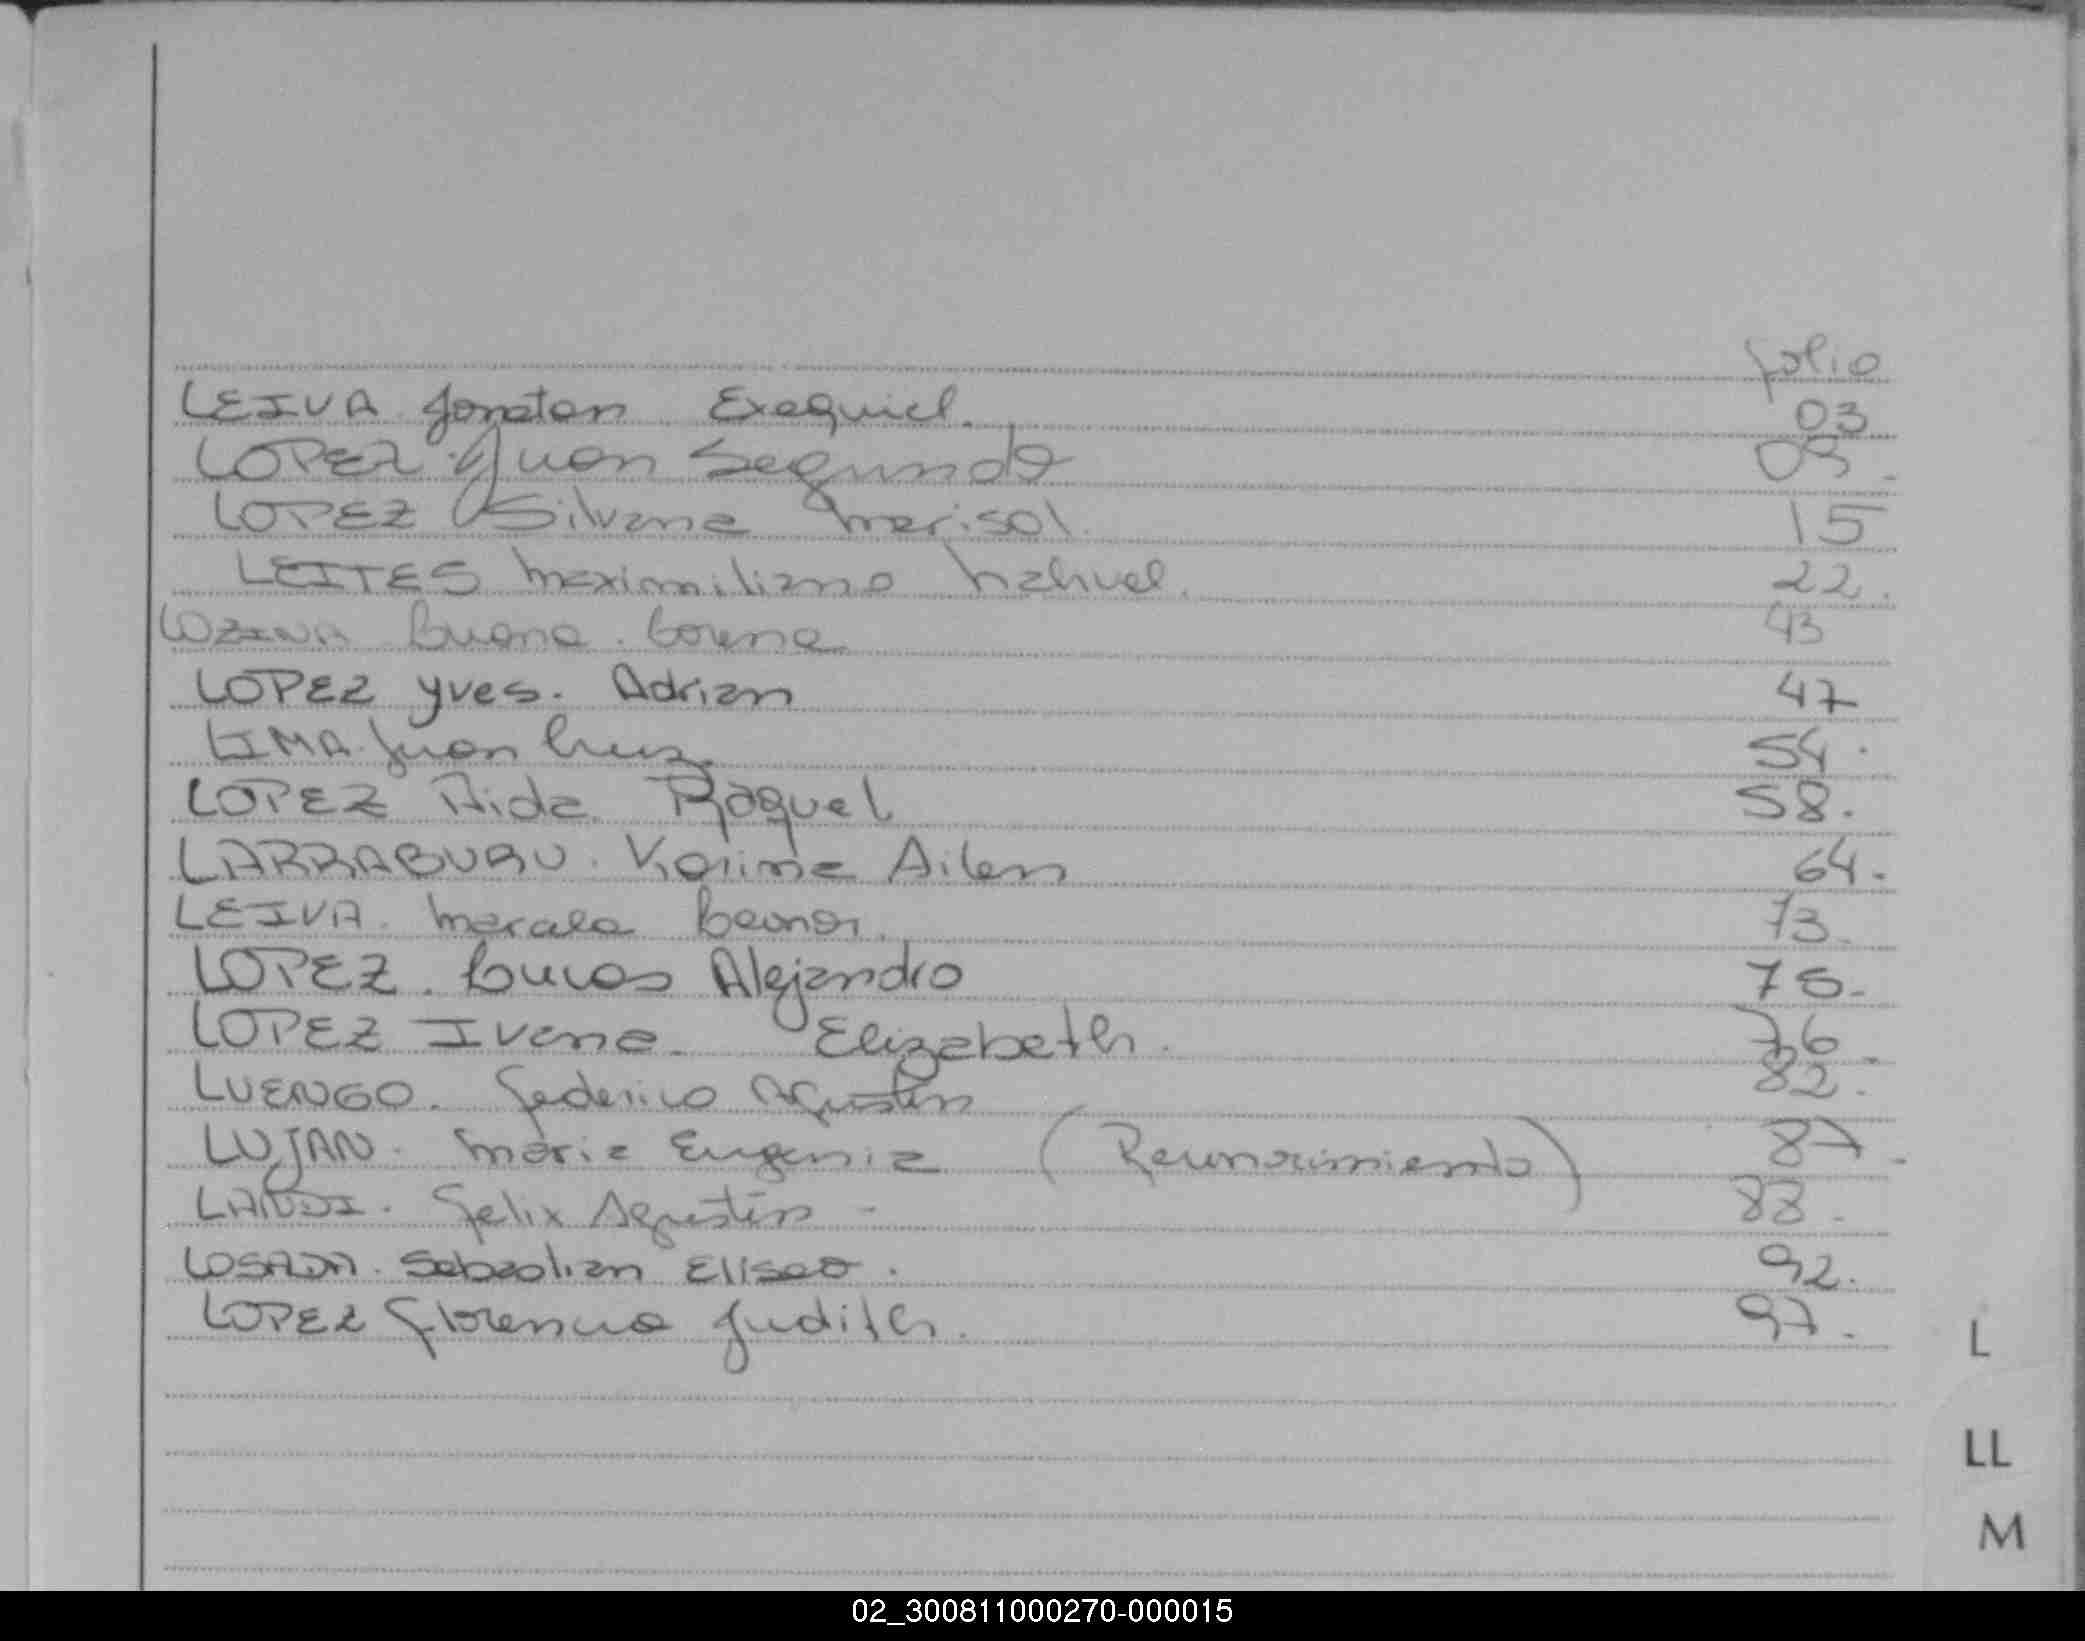 folio
LEIVA Jonatan Exequiel. 03
LOPEZ Juan Segundo 05.
LOPEZ Silvana Marisol. 15
LEITES Maximiliano Nahuel. 22.
Luana. Lorena 43
LOPEZ Yves. Adrian 47
LIMA. Juan Cruz. 54.
LOPEZ Aida Raquel 58.
LARRABURU. Karina Ailen 64.
LEIVA. Leonor. 73.
LOPEZ. Lucas Alejandro 75.
LOPEZ Ivana. Elizabeth. 76.
LUENGO. Federico Agustin 82.
LUJAN. Maria Eugenia (Reconocimiento) 87.
LANDI. Felix Agustin - 88.
LOSADA. Sebastian Eliseo. 92.
LOPEZ Florencia Judith. 97.
L
LL
M
02_300811000270-000015